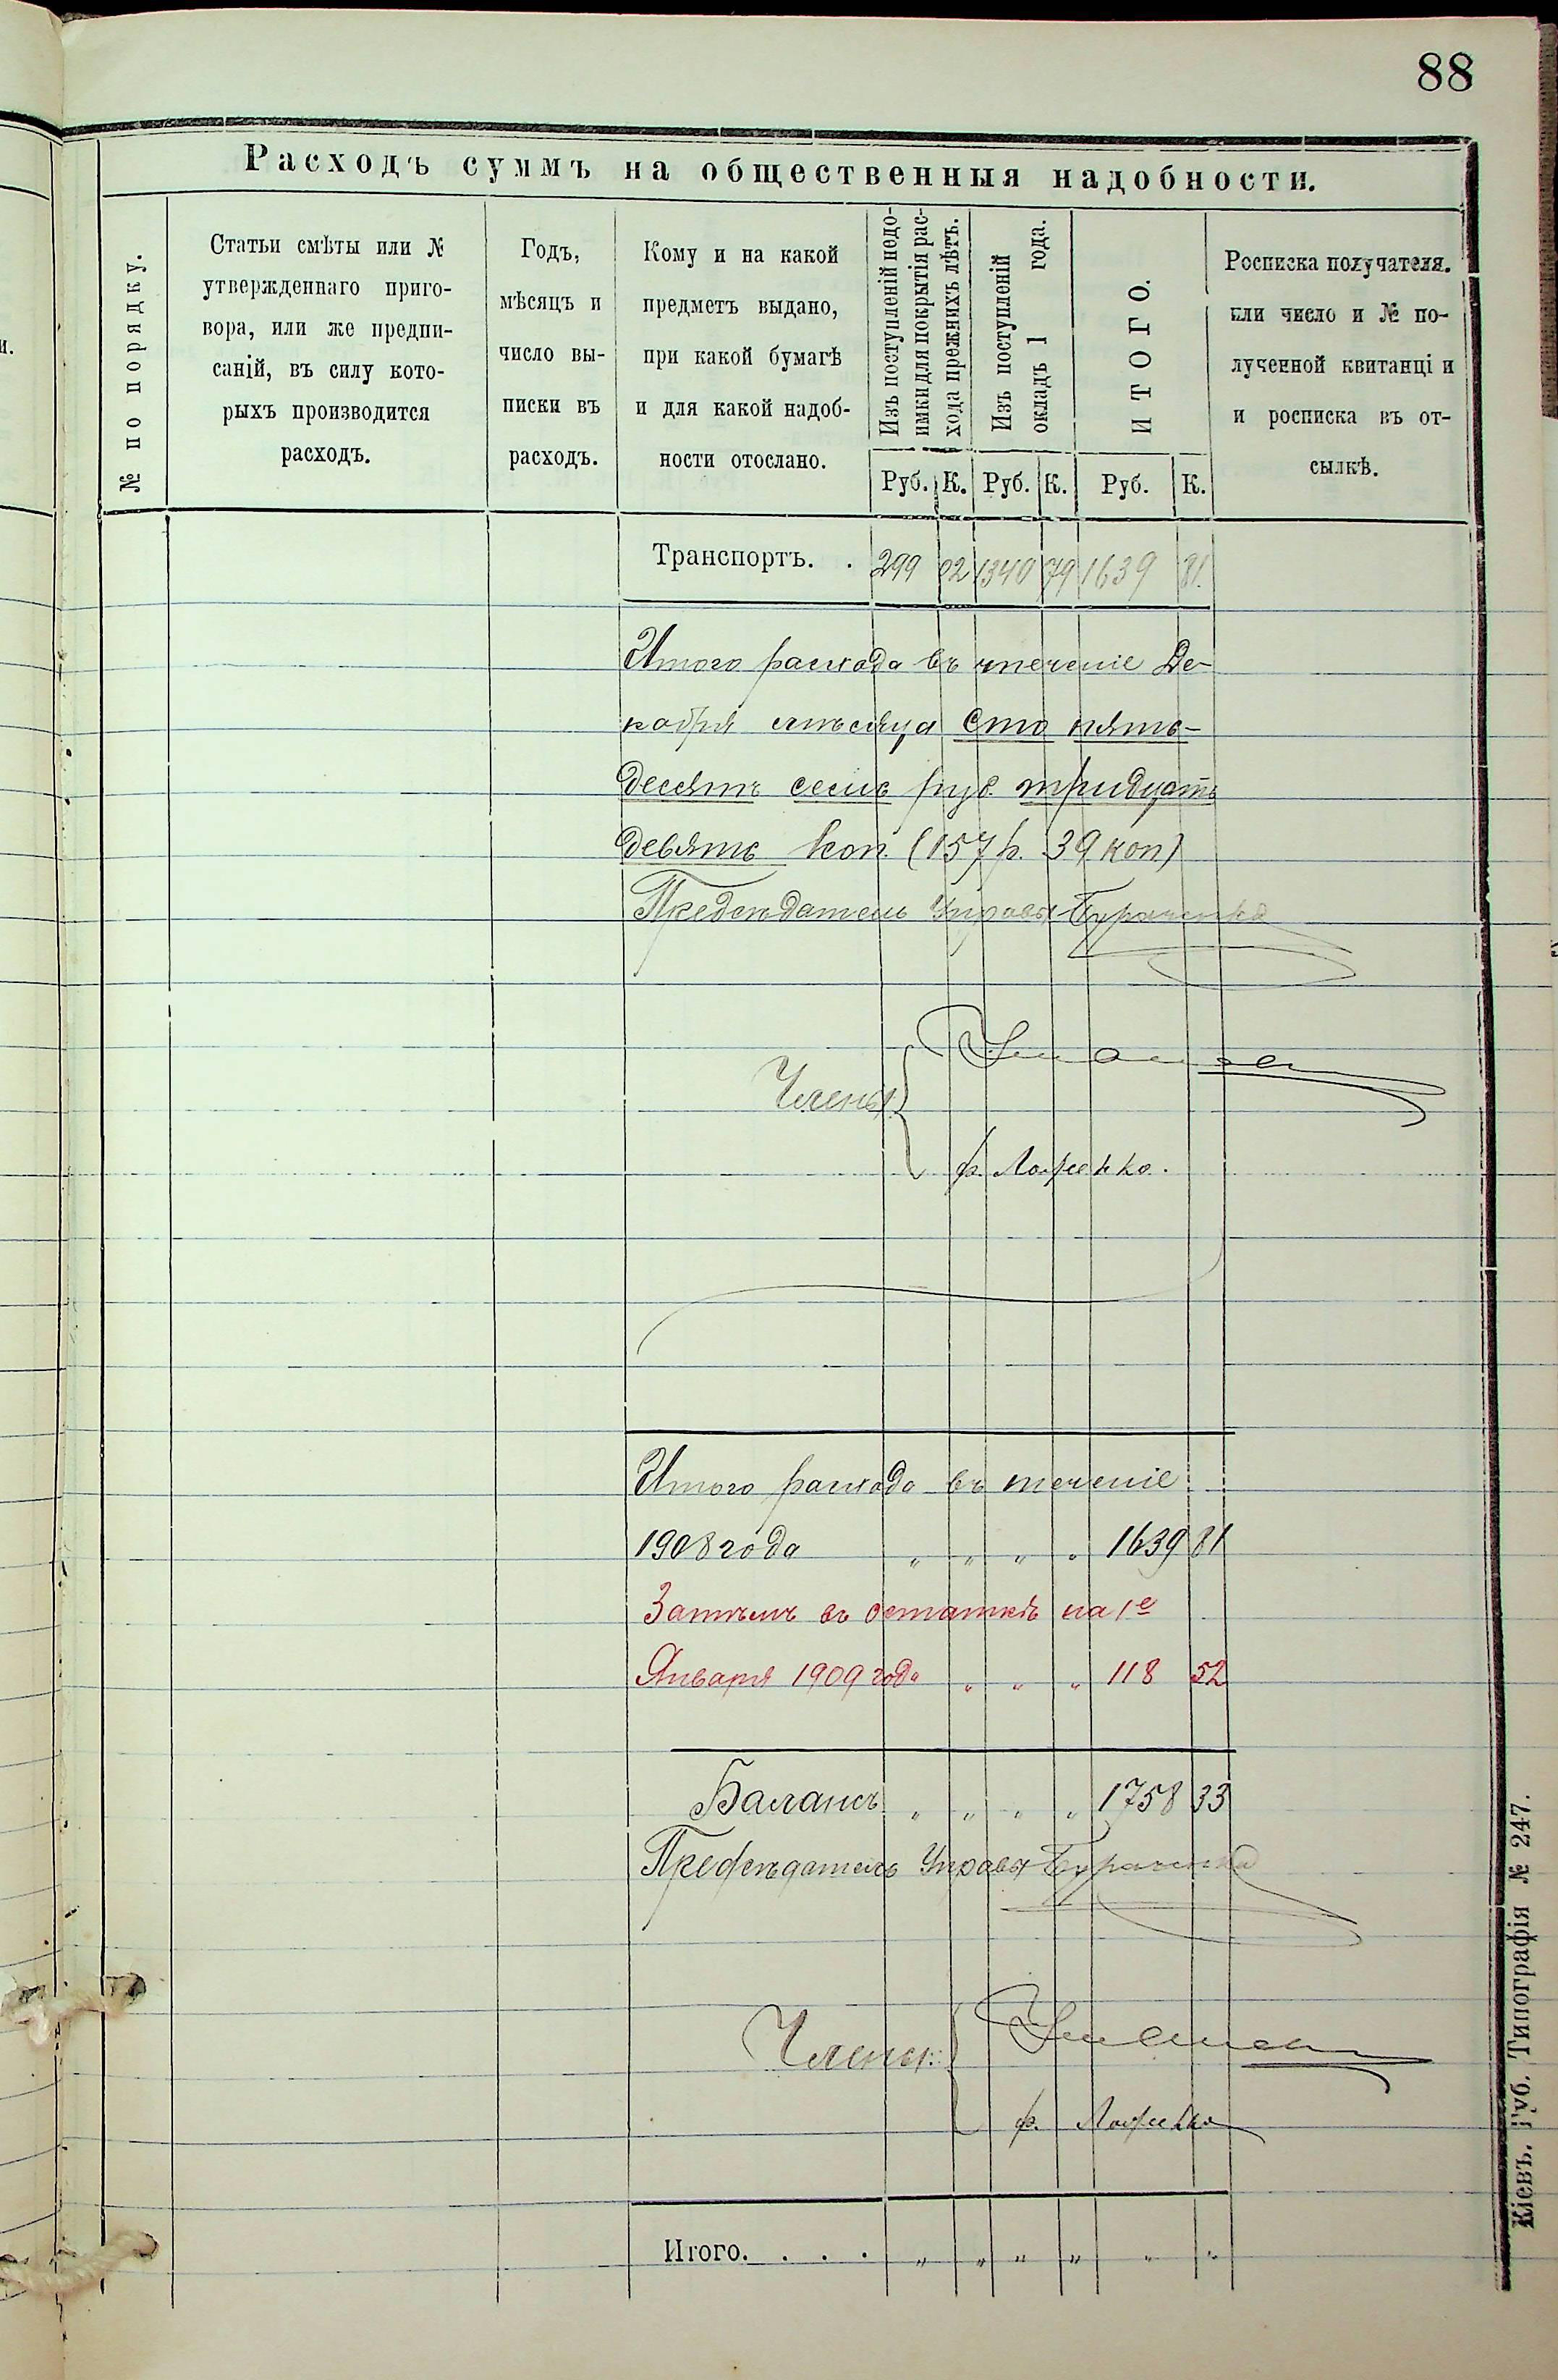 88
Расходъ суммъ на общественныя надобности.
№ по порядку.
Статьи смѣты или №
утвержденнаго приго-
вора, или же предпи-
саній, въ силу кото-
рыхъ производится
расходъ.
Годъ,
мѣсяцъ и
число вы-
писки въ
расходъ.
Кому и на какой
предметъ выдано,
при какой бумагѣ
и для какой надоб-
ности отослано.
Изъ поступленій недо-
имки для покрытія рас-
хода прежнихъ лѣтъ.
Изъ поступленій
окладъ 1 года.
ИТОГО.
Росписка получателя.
или число и № по-
лученной квитанці и
и росписка въ от-
сылкѣ.
Руб. К. Руб. К. Руб. К.
Транспортъ. . 299 02 1340 79 1639 81.
Итого расхода въ теченіе Де-
кабря мѣсяца сто пять-
десятъ семь руб. тридцать
девять коп. (157 р. 39 коп)
Предсѣдатель Управы
Члены:
ф.
Итого расхода въ теченіе
1908 года " " " " 1639 81
Затѣмъ въ остаткѣ на 1е
Января 1909 года " " " 118 52
Балансъ " " " " 1758 33
Предсѣдатель Управы
Члены:
ф.
Итого. . . . " " " " " "
Кіевъ. Губ. Типографія № 247.
и.